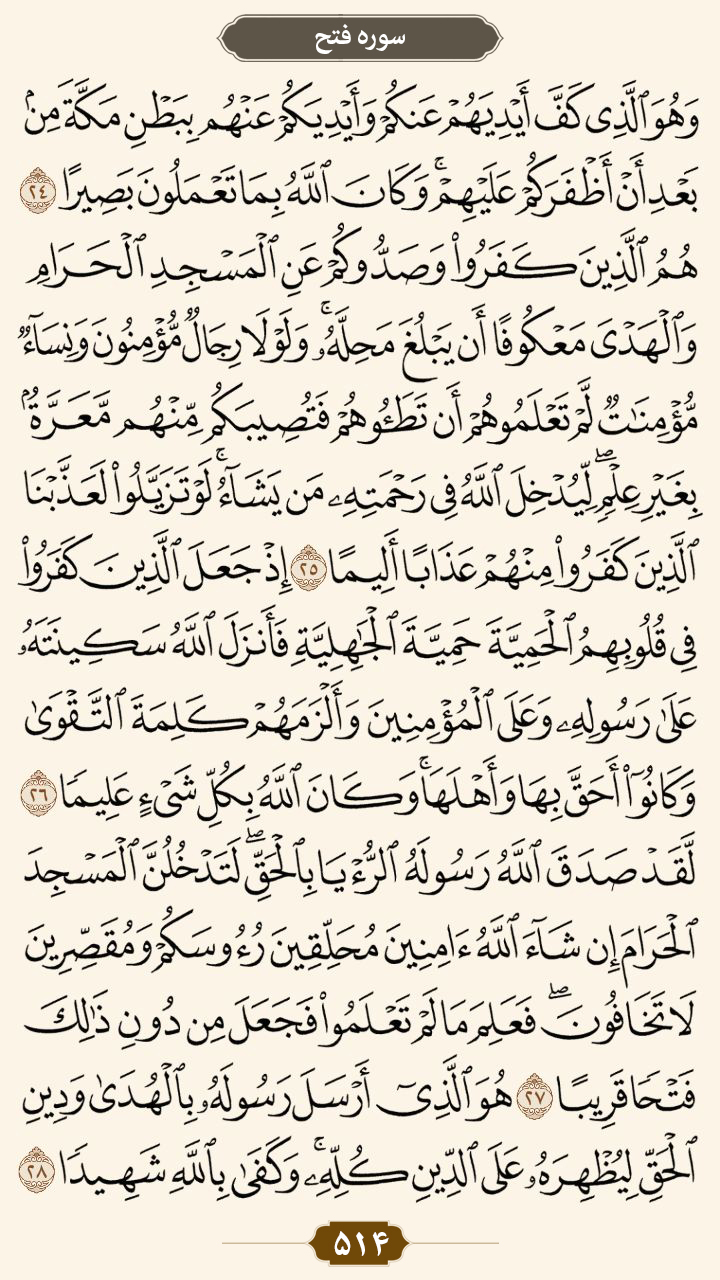 سوره فتح
وَهُوَ ٱلَّذِى كَفَّ أَيْدِيَهُمْ عَنكُمْ وَأَيْدِيَكُمْ عَنْهُم بِبَطْنِ مَكَّةَ مِنۢ
بَعْدِ أَنْ أَظْفَرَكُمْ عَلَيْهِمْ ۚ وَكَانَ ٱللَّهُ بِمَا تَعْمَلُونَ بَصِيرًا ٢٤
هُمُ ٱلَّذِينَ كَفَرُوا۟ وَصَدُّوكُمْ عَنِ ٱلْمَسْجِدِ ٱلْحَرَامِ
وَٱلْهَدْىَ مَعْكُوفًا أَن يَبْلُغَ مَحِلَّهُۥ ۚ وَلَوْلَا رِجَالٌ مُّؤْمِنُونَ وَنِسَآءٌ
مُّؤْمِنَـٰتٌ لَّمْ تَعْلَمُوهُمْ أَن تَطَـُٔوهُمْ فَتُصِيبَكُم مِّنْهُم مَّعَرَّةٌۢ
بِغَيْرِ عِلْمٍ ۖ لِّيُدْخِلَ ٱللَّهُ فِى رَحْمَتِهِۦ مَن يَشَآءُ ۚ لَوْ تَزَيَّلُوا۟ لَعَذَّبْنَا
ٱلَّذِينَ كَفَرُوا۟ مِنْهُمْ عَذَابًا أَلِيمًا ٢٥ إِذْ جَعَلَ ٱلَّذِينَ كَفَرُوا۟
فِى قُلُوبِهِمُ ٱلْحَمِيَّةَ حَمِيَّةَ ٱلْجَـٰهِلِيَّةِ فَأَنزَلَ ٱللَّهُ سَكِينَتَهُۥ
عَلَىٰ رَسُولِهِۦ وَعَلَى ٱلْمُؤْمِنِينَ وَأَلْزَمَهُمْ كَلِمَةَ ٱلتَّقْوَىٰ
وَكَانُوٓا۟ أَحَقَّ بِهَا وَأَهْلَهَا ۚ وَكَانَ ٱللَّهُ بِكُلِّ شَىْءٍ عَلِيمًا ٢٦
لَّقَدْ صَدَقَ ٱللَّهُ رَسُولَهُ ٱلرُّءْيَا بِٱلْحَقِّ ۖ لَتَدْخُلُنَّ ٱلْمَسْجِدَ
ٱلْحَرَامَ إِن شَآءَ ٱللَّهُ ءَامِنِينَ مُحَلِّقِينَ رُءُوسَكُمْ وَمُقَصِّرِينَ
لَا تَخَافُونَ ۖ فَعَلِمَ مَا لَمْ تَعْلَمُوا۟ فَجَعَلَ مِن دُونِ ذَٰلِكَ
فَتْحًا قَرِيبًا ٢٧ هُوَ ٱلَّذِىٓ أَرْسَلَ رَسُولَهُۥ بِٱلْهُدَىٰ وَدِينِ
ٱلْحَقِّ لِيُظْهِرَهُۥ عَلَى ٱلدِّينِ كُلِّهِۦ ۚ وَكَفَىٰ بِٱللَّهِ شَهِيدًا ٢٨
۵۱۴